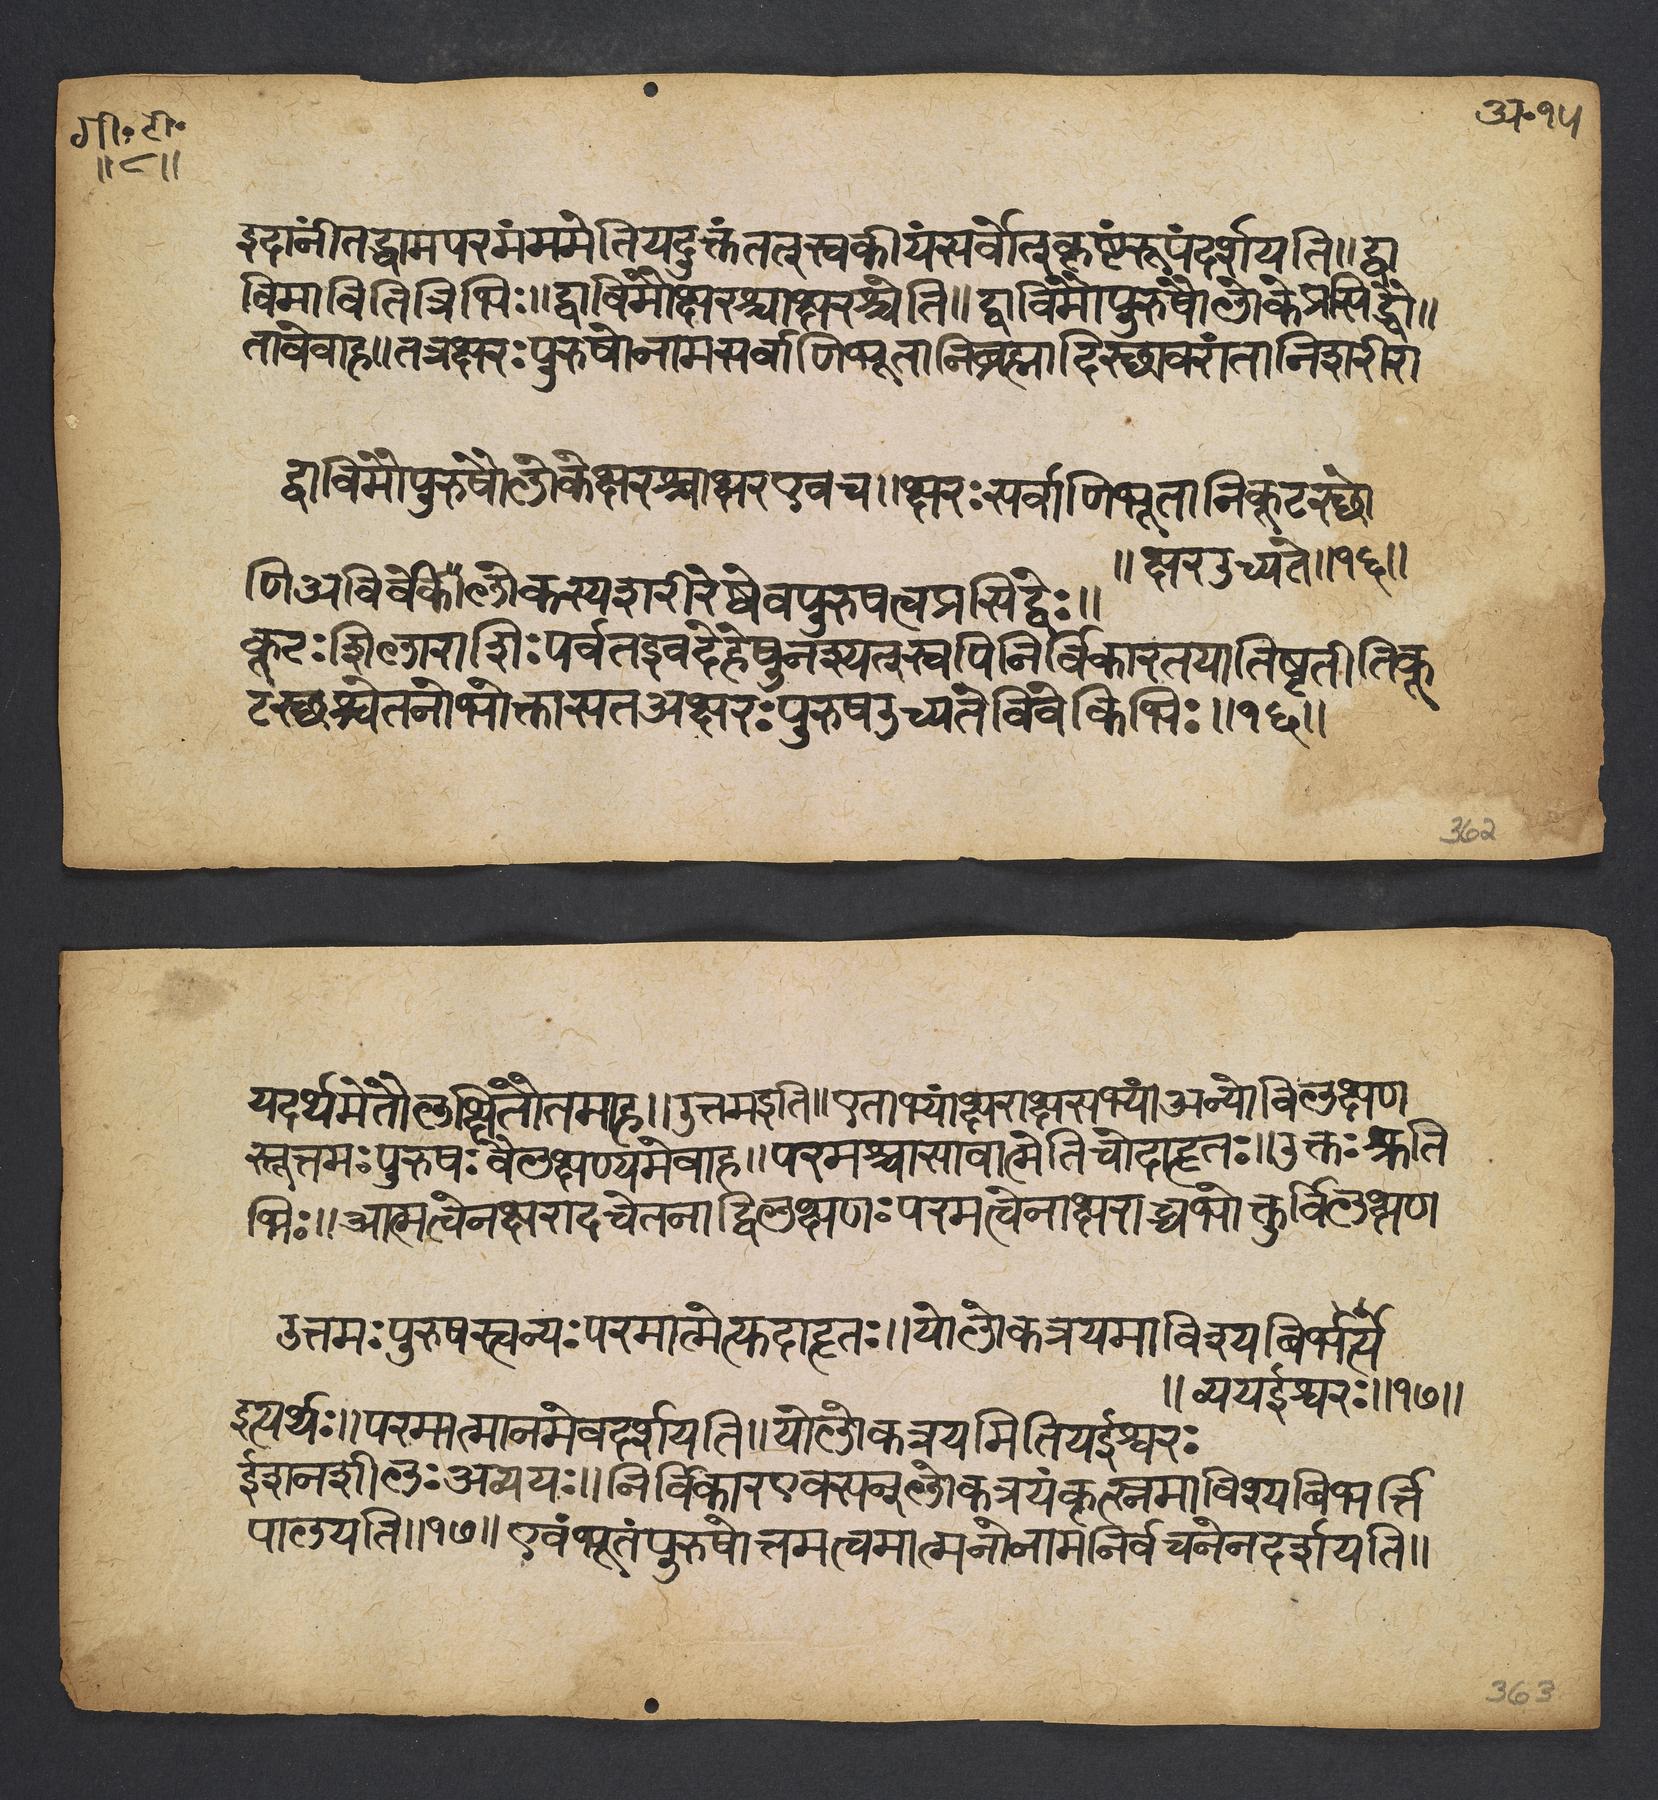 गी॰ टी॰
अ॰ १५
॥८॥
इदानीं तद्धामपरमंममेतियदुक्तंतत्स्वकीयंसर्वोत्कृष्टंरूपंदर्शयति॥द्वा
विमावितित्रिभिः॥द्वाविमौक्षरश्चाक्षरश्चेति॥द्वाविमौपुरुषौलोकेप्रसिद्धौ॥
तावेवाह॥तत्रक्षरःपुरुषोनामसर्वाणिभूतानिब्रह्मादिस्थावरांतानिशरीरा
द्वाविमौपुरुषौलोकेक्षरश्चाक्षरएवच॥क्षरःसर्वाणिभूतानिकूटस्थो
॥क्षरउच्यते॥१६॥
णिअविवेकीलोकस्यशरीरेष्वेवपुरुषत्वप्रसिद्धेः॥
कूटःशिलाराशिःपर्वतइवदेहेषुनश्यत्स्वपिनिर्विकारतयातिष्ठतीतिकू
टस्थश्चेतनोभोक्तासतअक्षरःपुरुषउच्यतेविवेकिभिः॥१६॥
362
यदर्थमेतौलक्षितौतमाह॥उत्तमइति॥एताभ्यांक्षराक्षराभ्यांअन्योविलक्षण
स्तूत्तमःपुरुषःवैलक्षण्यमेवाह॥परमश्चासावात्मेतिचोदाहृतः॥उक्तःश्रुति
भिः॥आत्मत्वेनक्षरादचेतनाद्विलक्षणःपरमत्वेनाक्षराच्चभोक्तुर्विलक्षण
उत्तमःपुरुषस्त्वन्यःपरमात्मेत्युदाहृतः॥योलोकत्रयमाविश्यबिभर्त्य
॥व्ययईश्वरः॥१७॥
इत्यर्थः॥परमात्मानमेवदर्शयति॥योलोकत्रयमितियईश्वरः
ईशनशीलःअव्ययः॥निर्विकारएवसन्लोकत्रयंकृत्स्नमाविश्यबिभर्त्ति
पालयति॥१७॥एवंभूतंपुरुषोत्तमत्वमात्मनोनामनिर्वचनेनदर्शयति॥
363